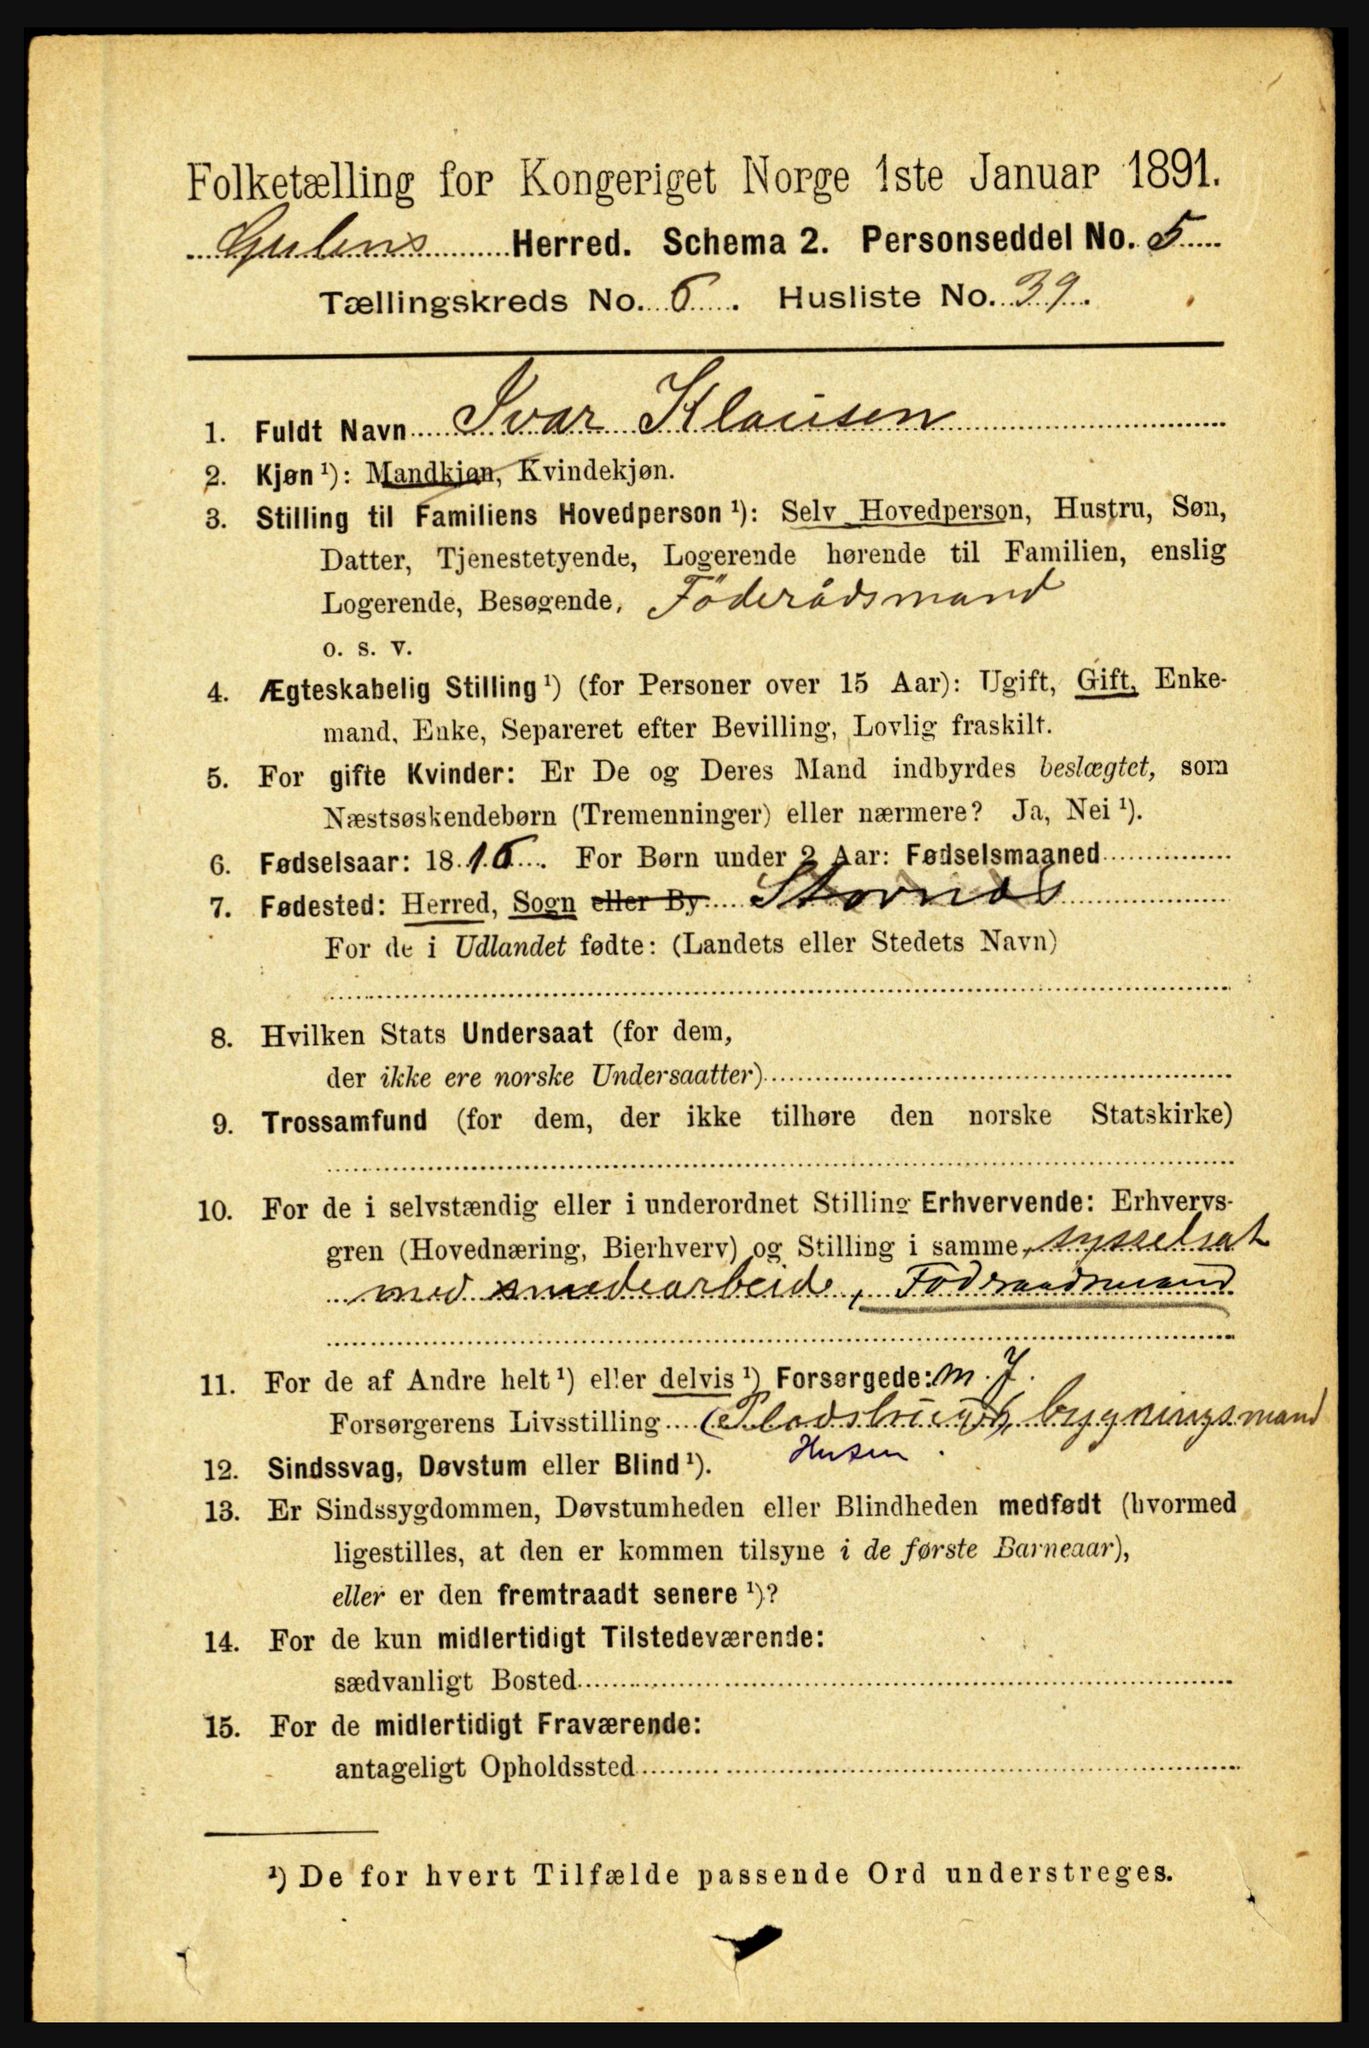 Folketælling for Kongeriget Norge 1ste Januar 1891.
Gulens Herred. Schema 2. Personseddel No. 5
Tællingskreds No. 6. Husliste No. 39.
1. Fuldt Navn Ivar Klausen
2. Kjøn ¹): Mandkjøn, Kvindekjøn.
3. Stilling til Familiens Hovedperson ¹): Selv Hovedperson, Hustru, Søn,
Datter, Tjenestetyende, Logerende hørende til Familien, enslig
Logerende, Besøgende, Föderådsmand
o. s. v.
4. Ægteskabelig Stilling ¹) (for Personer over 15 Aar): Ugift, Gift, Enke-
mand, Enke, Separeret efter Bevilling, Lovlig fraskilt.
5. For gifte Kvinder: Er De og Deres Mand indbyrdes beslægtet, som
Næstsøskendebørn (Tremenninger) eller nærmere? Ja, Nei ¹).
6. Fødselsaar: 1816. For Børn under 2 Aar: Fødselsmaaned
7. Fødested: Herred, Sogn eller By Stavnæs
For de i Udlandet fødte: (Landets eller Stedets Navn)
8. Hvilken Stats Undersaat (for dem,
der ikke ere norske Undersaatter)
9. Trossamfund (for dem, der ikke tilhøre den norske Statskirke)
10. For de i selvstændig eller i underordnet Stilling Erhvervende: Erhvervs-
gren (Hovednæring, Bierhverv) og Stilling i samme, sysselsat
med smedearbeide, Fødraadsmand
11. For de af Andre helt ¹) eller delvis ¹) Forsørgede: m. J.
Forsørgerens Livsstilling (Pladsbrug), bygningsmand
12. Sindssvag, Døvstum eller Blind ¹).
13. Er Sindssygdommen, Døvstumheden eller Blindheden medfødt (hvormed
ligestilles, at den er kommen tilsyne i de første Barneaar),
eller er den fremtraadt senere ¹)?
14. For de kun midlertidigt Tilstedeværende:
sædvanligt Bosted
15. For de midlertidigt Fraværende:
antageligt Opholdssted
¹) De for hvert Tilfælde passende Ord understreges.